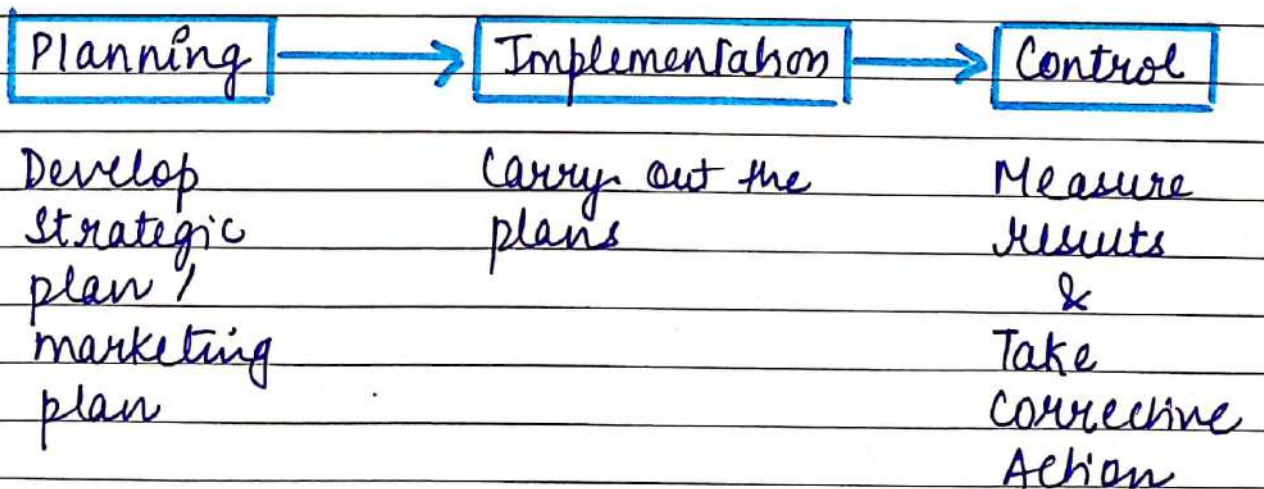 Planning → Implementation → Control
Develop
Strategic
plan /
marketing
plan
Carry out the
plans
Measure
results
&
Take
corrective
Action